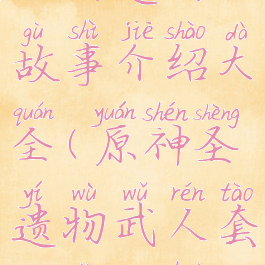 gù shì jiè shào dà
故事介绍大
quán yuán shén shèng
全(原神圣
yí wù wǔ rén tào
遗物武人套